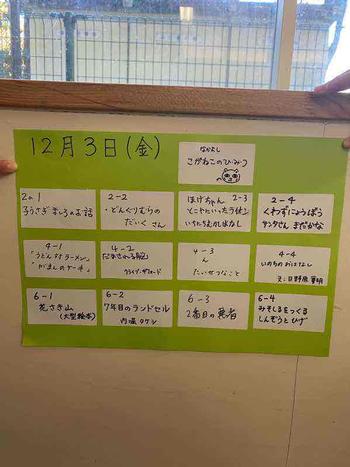 12月3日(金)
なかよし
こがねこのひみつ
2の1
子うさぎましろのお話
2-2
・どんぐりむらの
だいくさん
ほげちゃん 2-3
とこやにいったライオン
いちにちおもちゃ
2-4
くわずにょうぼう
サンタさん まだかな
4-1
「うどん対ラーメン」
「がまんのケーキ」
4-2
4-3
ん
たいせつなこと
4-4
いのちのおはなし
文:日野原 重明
6-1
花さき山
(大型絵本)
6-2
7年目のランドセル
内堀タケシ
6-3
2番目の悪者
6-4
みそしるをつくる
しんぞうとひげ